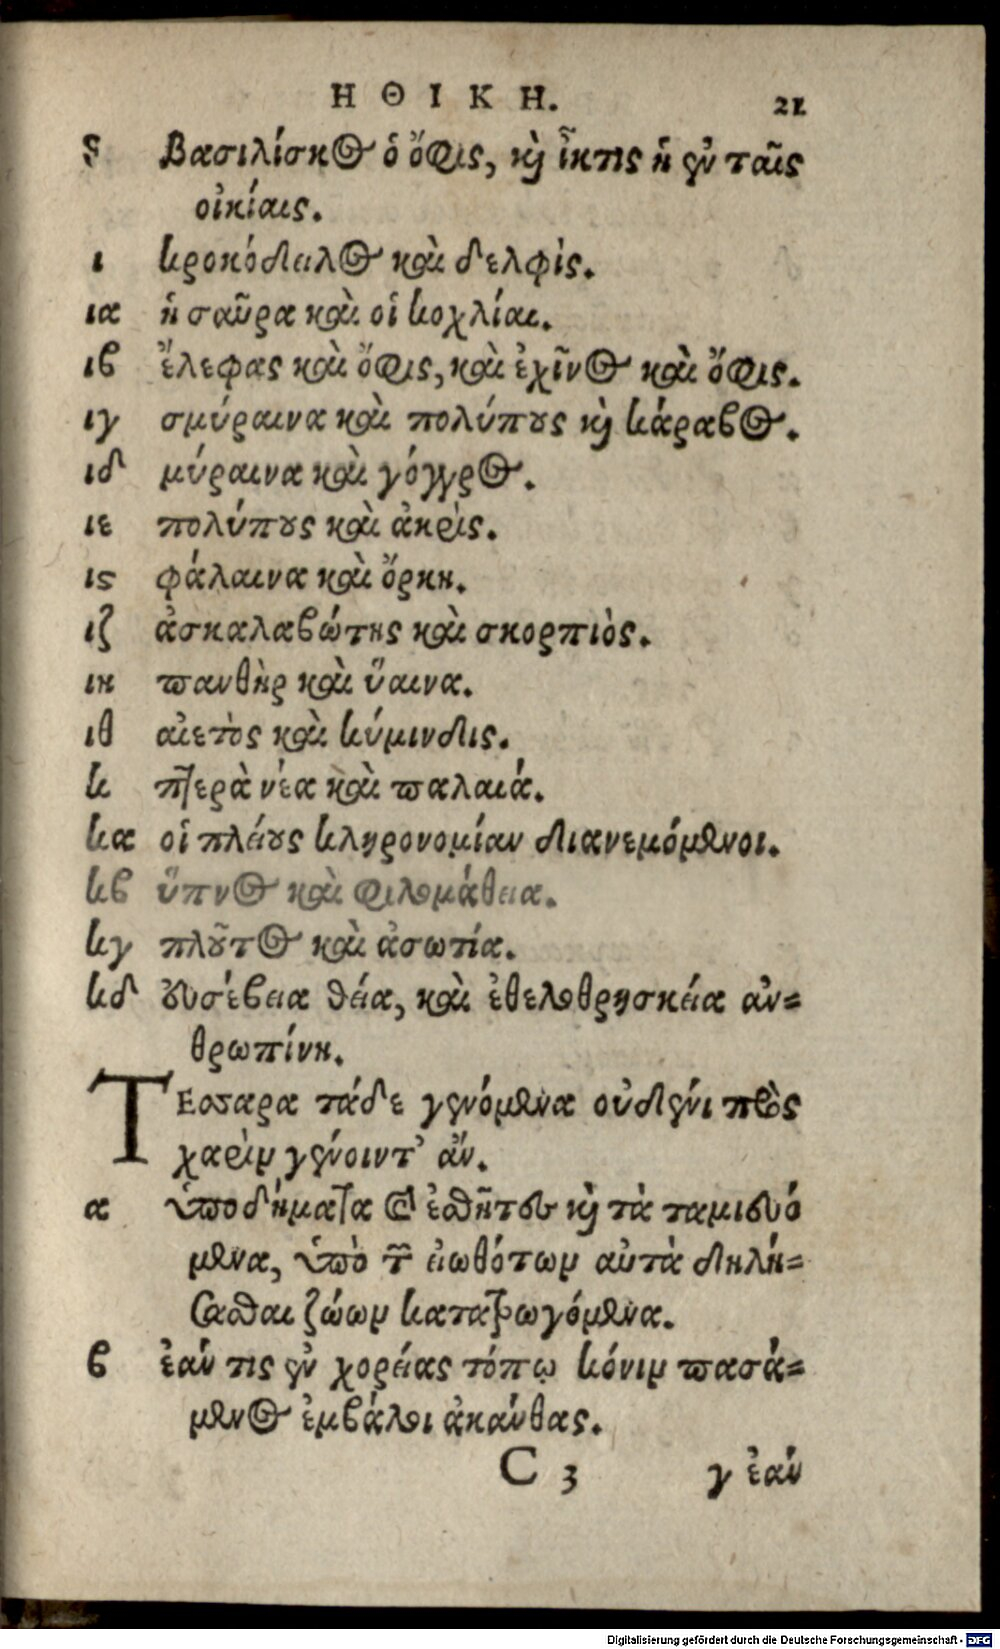 ΗΘΙΚΗ. 21
ϛ Βασιλίσκος ὁ ὄφις, καὶ ἴκτις ἡ ἐν ταῖς
οἰκίαις.
ι κροκόδειλος καὶ δελφὶς.
ια ἡ σαῦρα καὶ οἱ κοχλίαι.
ιβ ἔλεφας καὶ ὄφις, καὶ ἐχῖνος καὶ ὄφις.
ιγ σμύραινα καὶ πολύπους καὶ κάραβος.
ιδ μύραινα καὶ γόγγρος.
ιε πολύπους καὶ ἀκρὶς.
ις φάλαινα καὶ ὄρκη.
ιζ ἀσκαλαβώτης καὶ σκορπιὸς.
ιη πανθὴρ καὶ ὕαινα.
ιθ αἰετὸς καὶ κύμινδις.
κ πτερὰ νέα καὶ παλαιά.
κα οἱ πλείους κληρονομίαν διανεμόμενοι.
κβ ὕπνος καὶ φιλομάθεια.
κγ πλοῦτος καὶ ἀσωτία.
κδ εὐσέβεια θεία, καὶ ἐθελοθρησκεία ἀν-
θρωπίνη.
ΤΕσσαρα τάδε γενόμενα οὐδενί πρὸς
χάριν γένοιντ’ ἄν.
α ὑποδήματα καὶ ἐσθῆτες καὶ τὰ ταμιευό
μενα, ὑπὸ τῶν εἰωθότων αὐτὰ δηλή-
σασθαι ζώων κατατρωγόμενα.
β ἐάν τις ἐν χορείας τόπῳ κόνιν πασά-
μενος ἐμβάλοι ἀκάνθας.
C 3 γ ἐάν
Digitalisierung gefördert durch die Deutsche Forschungsgemeinschaft - DFG